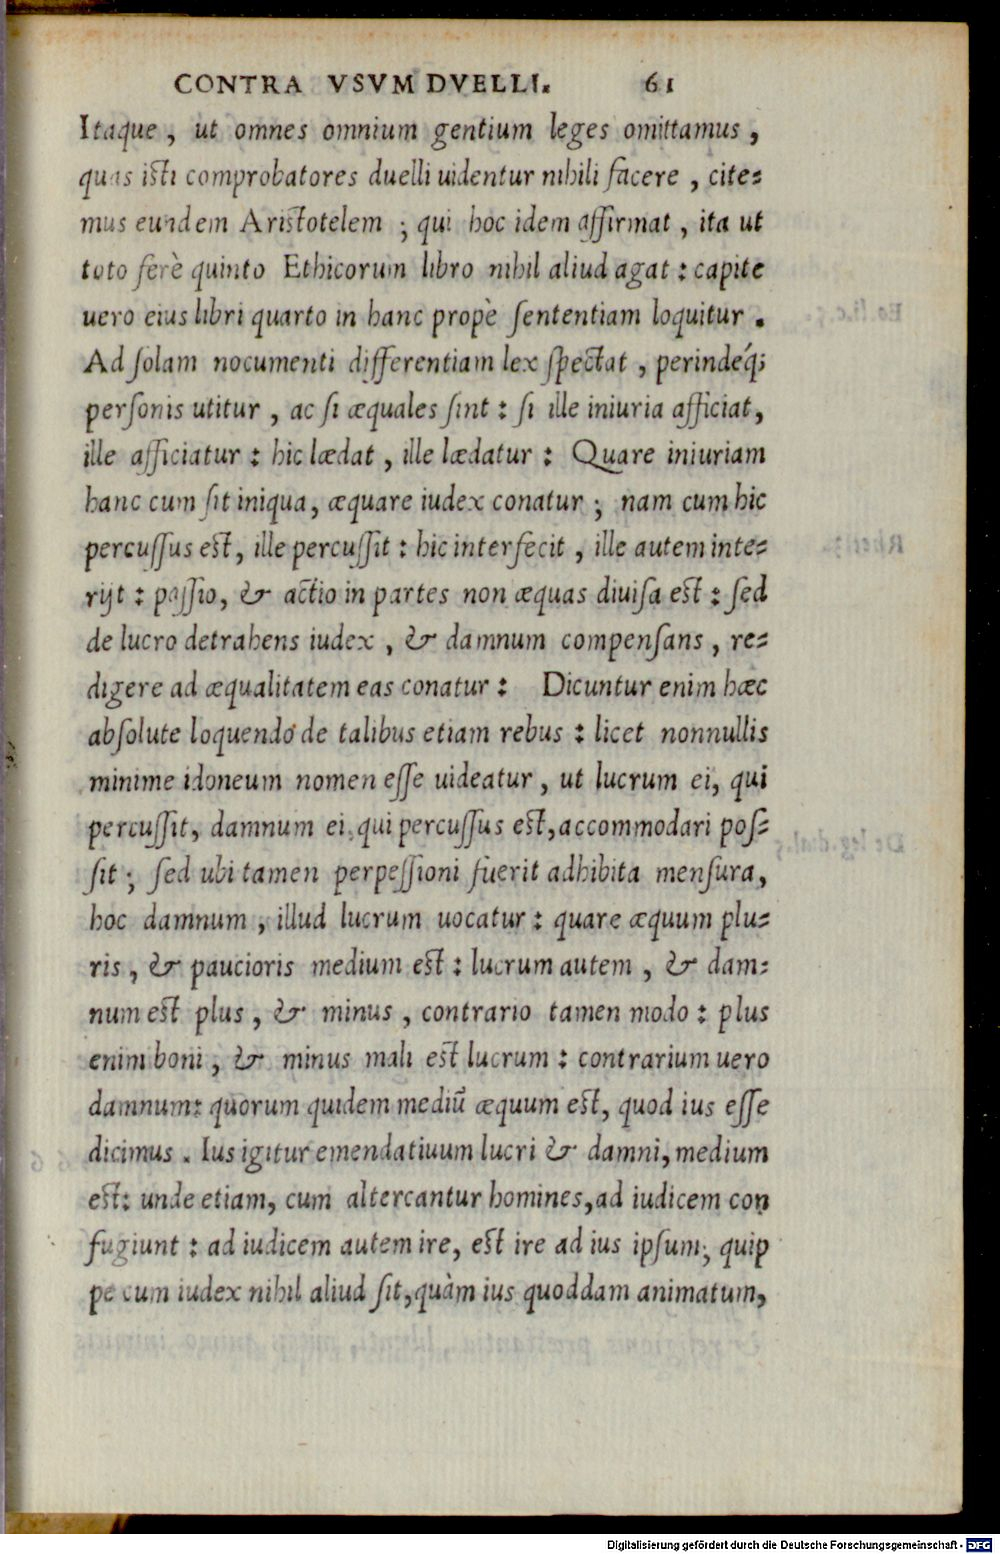 CONTRA VSVM DVELLI. 61
Itaque, ut omnes omnium gentium leges omittamus,
quas isti comprobatores duelli uidentur nihili facere, cite=
mus eundem Aristotelem; qui hoc idem affirmat, ita ut
toto ferè quinto Ethicorum libro nihil aliud agat: capite
uero eius libri quarto in hanc propè sententiam loquitur.
Ad solam nocumenti differentiam lex spectat, perindeq́;
personis utitur, ac si æquales sint: si ille iniuria afficiat,
ille afficiatur: hic lædat, ille lædatur: Quare iniuriam
hanc cum sit iniqua, æquare iudex conatur; nam cum hic
percussus est, ille percussit: hic interfecit, ille autem inte=
rijt: passio, & actio in partes non æquas diuisa est: sed
de lucro detrahens iudex, & damnum compensans, re=
digere ad æqualitatem eas conatur: Dicuntur enim hæc
absolute loquendo de talibus etiam rebus: licet nonnullis
minime idoneum nomen esse uideatur, ut lucrum ei, qui
percussit, damnum ei qui percussus est, accommodari pos=
sit; sed ubi tamen perpessioni fuerit adhibita mensura,
hoc damnum, illud lucrum uocatur: quare æquum plu=
ris, & paucioris medium est: lucrum autem, & dam=
num est plus, & minus, contrario tamen modo: plus
enim boni, & minus mali est lucrum: contrarium uero
damnum: quorum quidem mediũ æquum est, quod ius esse
dicimus. Ius igitur emendatiuum lucri & damni, medium
est: unde etiam, cum altercantur homines, ad iudicem con
fugiunt: ad iudicem autem ire, est ire ad ius ipsum; quip
pe cum iudex nihil aliud sit, quàm ius quoddam animatum,
Digitalisierung gefördert durch die Deutsche Forschungsgemeinschaft - DFG